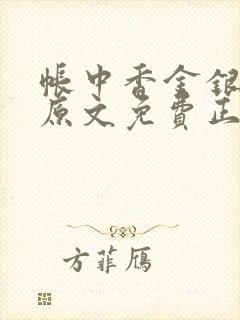 帐中香金银
原文免费正
方菲雁